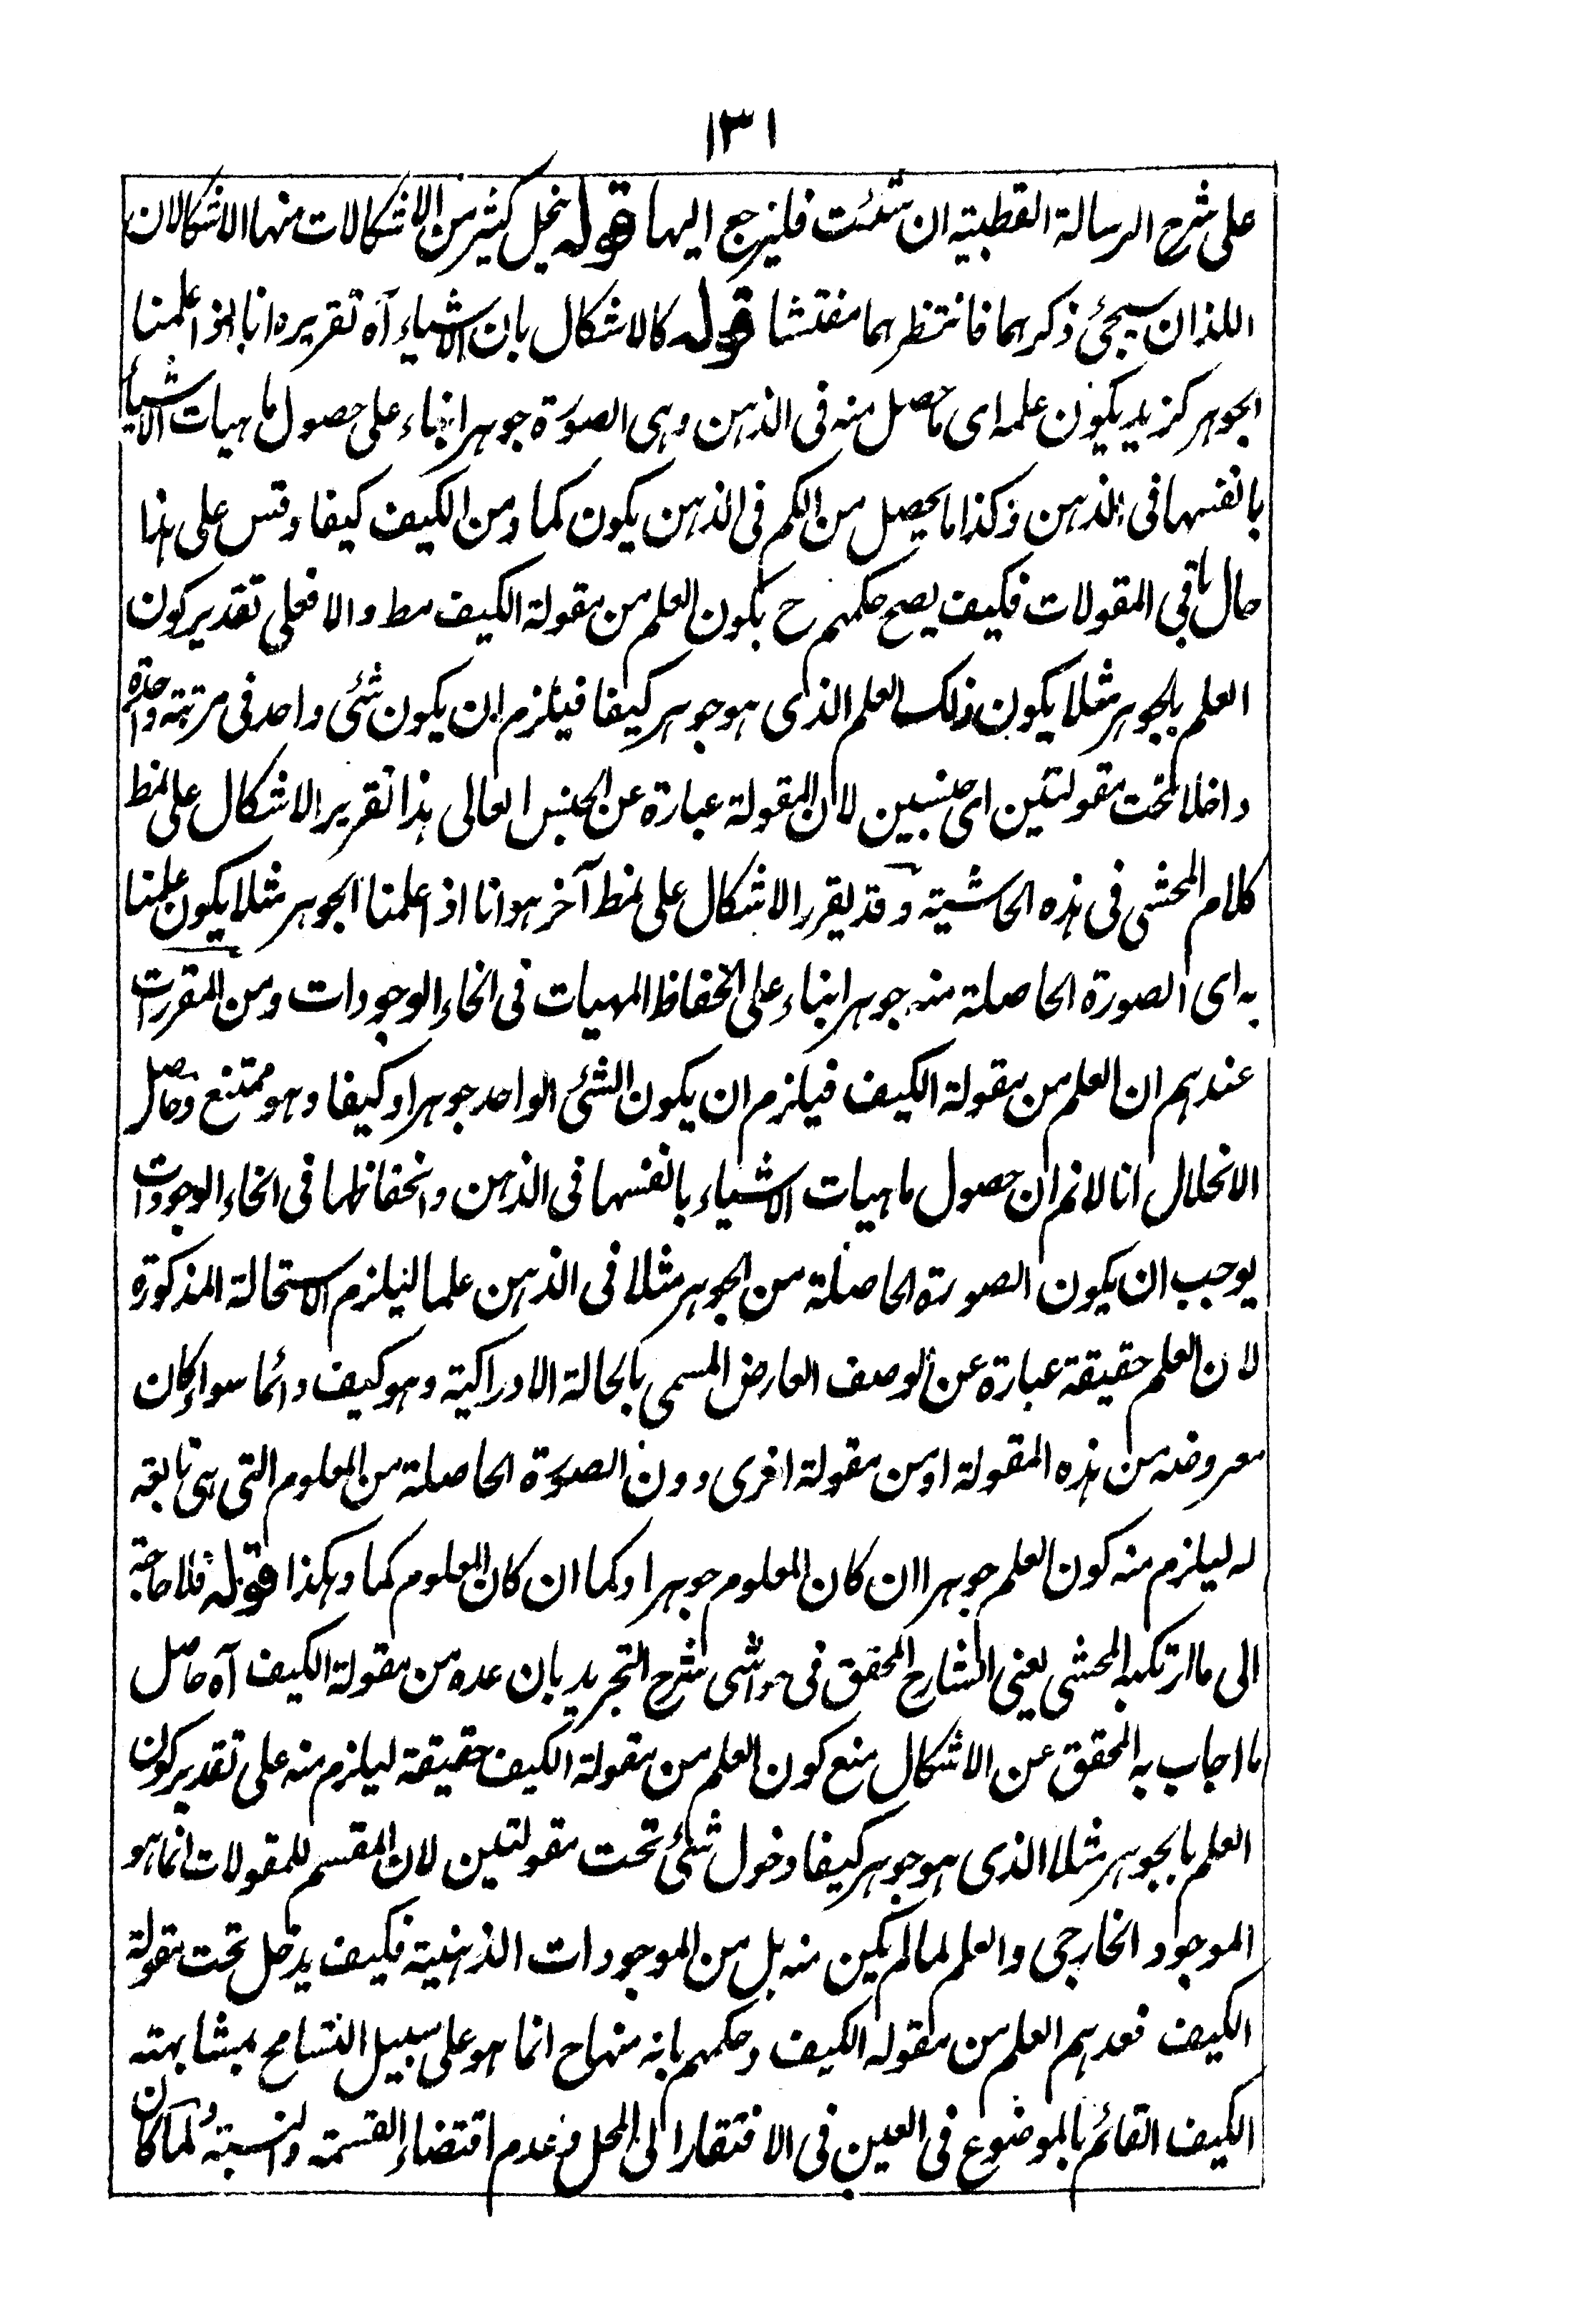 ١٣١
على شرح الرسالة القطبية ان شئت فليرجع اليها قوله ينحل كثير من الاشكالات منها الاشكالان
اللذان سيجئ ذكرهما فانتظرهما مفتشا قوله كالاشكال بان الاشياء آه تقريره انا اذا علمنا
الجوهر كزيد يكون علمه اى ما حصل منه فى الذهن وهى الصورة جوهرا بناء على حصول ماهيات الاشياء
بانفسها فى الذهن وكذا ما يحصل من الكم فى الذهن يكون كما ومن الكيف كيفا وقس على هذا
حال باقى المقولات فكيف يصح حكمهم ح بكون العلم من مقولة الكيف مط والا فعلى تقدير كون
العلم بالجوهر مثلا يكون ذلك العلم الذى هو جوهر كيفا فيلزم ان يكون شئ واحد فى مرتبة واحدة
داخلا تحت مقولتين اى جنسين لان المقولة عبارة عن الجنس العالى هذا تقرير الاشكال على نمط
كلام المحشى فى هذه الحاشية وقد يقرر الاشكال على نمط آخر هو انا اذا علمنا الجوهر مثلا يكون علمنا
به اى الصورة الحاصلة منه جوهرا بناء على انحفاظ المهيات فى انحاء الوجودات ومن المقررات
عندهم ان العلم من مقولة الكيف فيلزم ان يكون الشئ الواحد جوهرا وكيفا وهو ممتنع وحاصل
الانحلال انا لا نم ان حصول ماهيات الاشياء بانفسها فى الذهن وانحفاظها فى انحاء الوجودات
يوجب ان يكون الصورة الحاصلة من الجوهر مثلا فى الذهن علما ليلزم الاستحالة المذكورة
لان العلم حقيقة عبارة عن الوصف العارض المسمى بالحالة الادراكية وهو كيف دائما سواء كان
معروضه من هذه المقولة او من مقولة اخرى دون الصورة الحاصلة من المعلوم التى هى تابعة
له ليلزم منه كون العلم جوهرا ان كان المعلوم جوهرا وكما ان كان المعلوم كما وهكذا قوله فلا حاجة
الى ما ارتكبه المحشى يعنى الشارح المحقق فى حواشى شرح التجريد بان عده من مقولة الكيف آه حاصل
ما اجاب به المحقق عن الاشكال منع كون العلم من مقولة الكيف حقيقة ليلزم منه على تقدير كون
العلم بالجوهر مثلا الذى هو جوهر كيفا دخول شئ تحت مقولتين لان المقسم للمقولات انما هو
الموجود الخارجى والعلم لما لم يكن منه بل من الموجودات الذهنية فكيف يدخل تحت مقولة
الكيف فعدهم العلم من مقولة الكيف وحكمهم بانه منها ح انما هو على سبيل التسامح بمشابهته
الكيف القائم بالموضوع فى العين فى الافتقار الى المحل وعدم اقتضاء القسمة والنسبة ولما كان